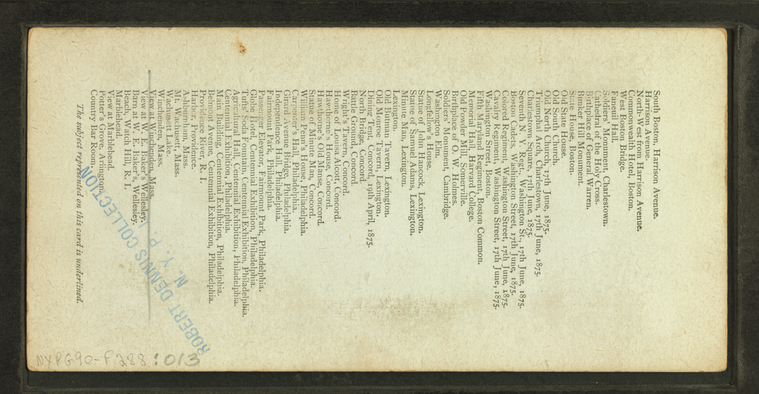 South Boston, Harrison Avenue.
Harrison Avenue.
North-West from Harrison Avenue.
Commonwealth Hotel, Boston.
West Boston Bridge.
Faneuil Hall.
Soldiers' Monument, Charlestown.
Cathedral of the Holy Cross.
Birthplace of General Warren.
Bunker Hill Monument.
State House, Boston.
Old State House.
Old South Church.
Old North Church, 17th June, 1875.
Triumphal Arch, Charlestown, 17th June, 1875.
Charlestown Square, 17th June, 1875.
Seventh Reg't, N. Y., Washington St., 17th June, 1875.
Boston Cadets, Washington Street, 17th June, 1875.
Colored Regiment, Washington Street, 17th June, 1875.
Cavalry Regiment, Washington Street, 17th June, 1875.
Washington Street, Boston.
Fifth Maryland Reg., Boston Common.
Memorial Hall, Harvard College.
Old Powder Mill, Somerville.
Birthplace of O. W. Holmes.
Soldiers' Monument, Cambridge.
Washington Elm.
Longfellow's House.
Statue of John Hancock, Lexington.
Statue of Samuel Adams, Lexington.
Minute Man, Lexington.
Lexington.
Old Buman Tavern, Lexington.
Old Munroe Tavern, Lexington.
Dining Tent, Concord, 19th April, 1875.
North Bridge, Concord.
Battle Ground, Concord.
Wright's Tavern, Concord.
Home of Louisa Alcott, Concord.
Hawthorne's House, Concord.
Hawthorne's Old Manse, Concord.
Statue of Minute Man, Concord.
William Penn's House, Philadelphia.
Carpenter's Hall, Philadelphia.
Girard Avenue Bridge, Philadelphia.
Independence Hall, Philadelphia.
Fairmount Park, Philadelphia.
Passenger Elevator, Fairmount Park, Philadelphia.
Globe Hotel, Centennial Exhibition, Philadelphia.
Tufts' Soda Fountain, Centennial Exhibition, Philadelphia.
Agricultural Hall, Centennial Exhibition, Philadelphia.
Centennial Exhibition, Philadelphia.
Main Building, Centennial Exhibition, Philadelphia.
Belmont Avenue, Centennial Exhibition, Philadelphia.
Providence River, R. I.
Harbor, Providence.
Ashburnham, Mass.
Mt. Wachusett, Mass.
Wachusett Lake.
Winchendon, Mass.
View at Winchendon, Mass.
View at W. E. Baker's, Wellesley.
Barn at W. E. Baker's, Wellesley.
Beach, Watch Hill, R. I.
Marblehead.
View at Marblehead.
Potter's Grove, Arlington.
Country Bar Room.
The subject represented on this card is underlined.
ROBERT DENNIS COLLECTION
N. Y. P. L.
NYPG90-F388:013